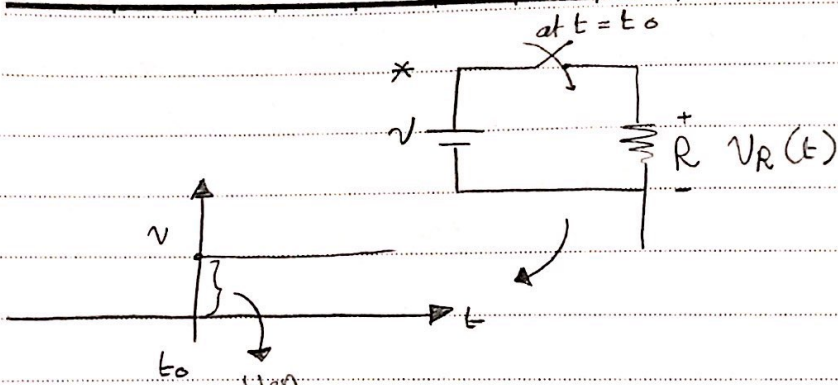 at t = to
*
V
+
R VR (t)
-
V
t
to